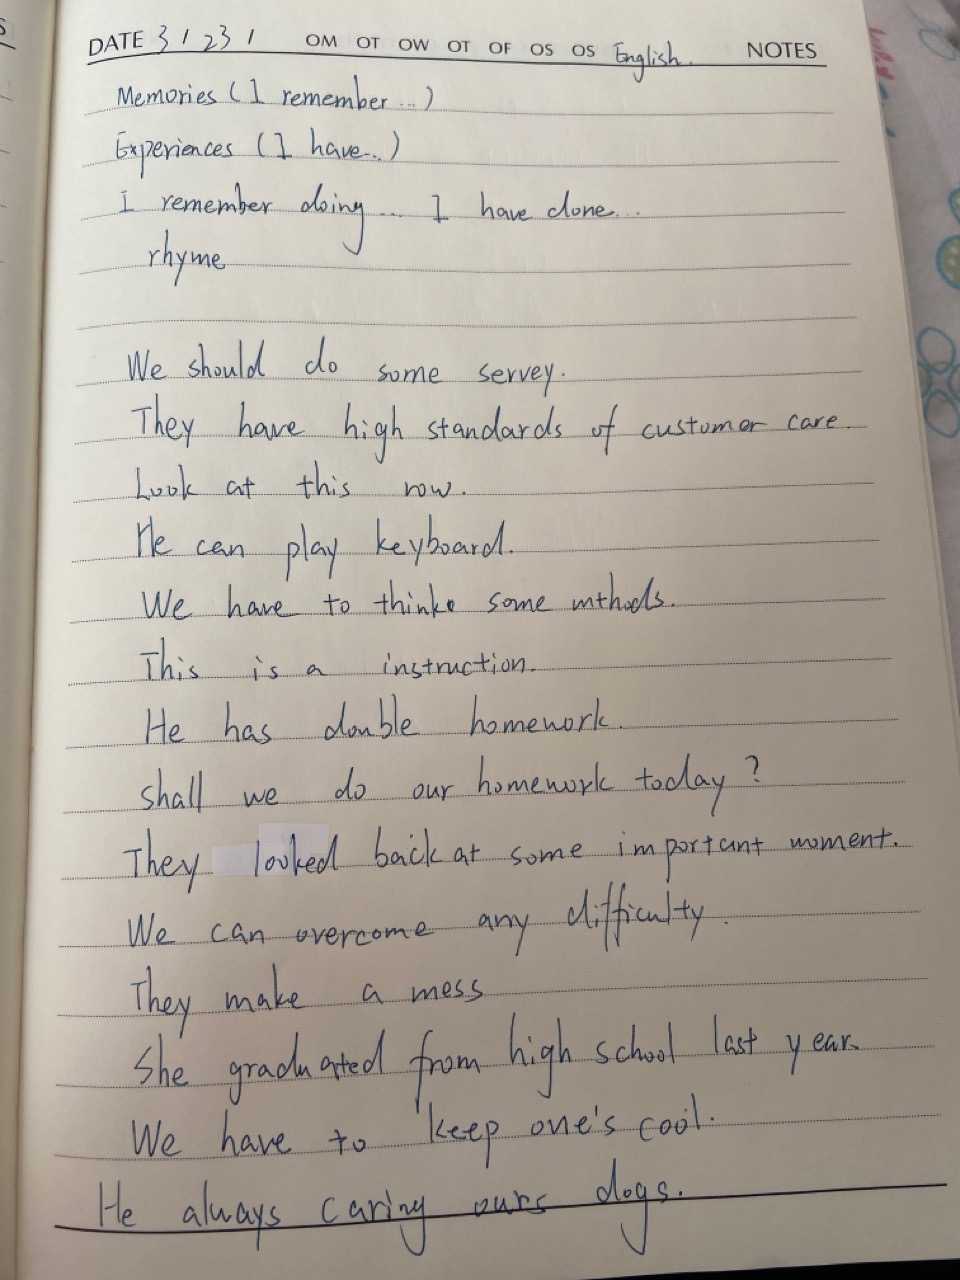 DATE 3 / 23 / OM OT OW OT OF OS OS English. NOTES
Memories (I remember ...)
Experiences (I have...)
I remember doing... I have done...
rhyme
We should do some servey.
They have high standards of customer care.
Look at this row.
He can play keyboard.
We have to thinke some mthods.
This is a instruction.
He has double homework.
shall we do our homework today?
They looked back at some important moment.
We can overcome any difficulty.
They make a mess
She graduated from high school last year.
We have to keep one's cool.
He always caring ours dogs.